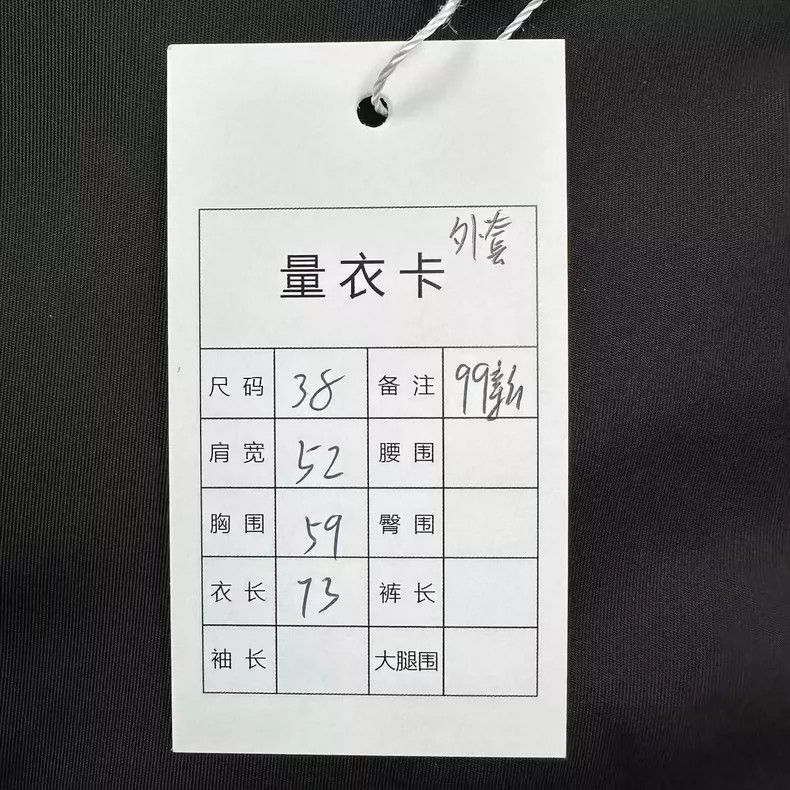 外套
量衣卡
尺码 38 备注 99新
肩宽 52 腰围
胸围 59 臀围
衣长 73 裤长
袖长 大腿围